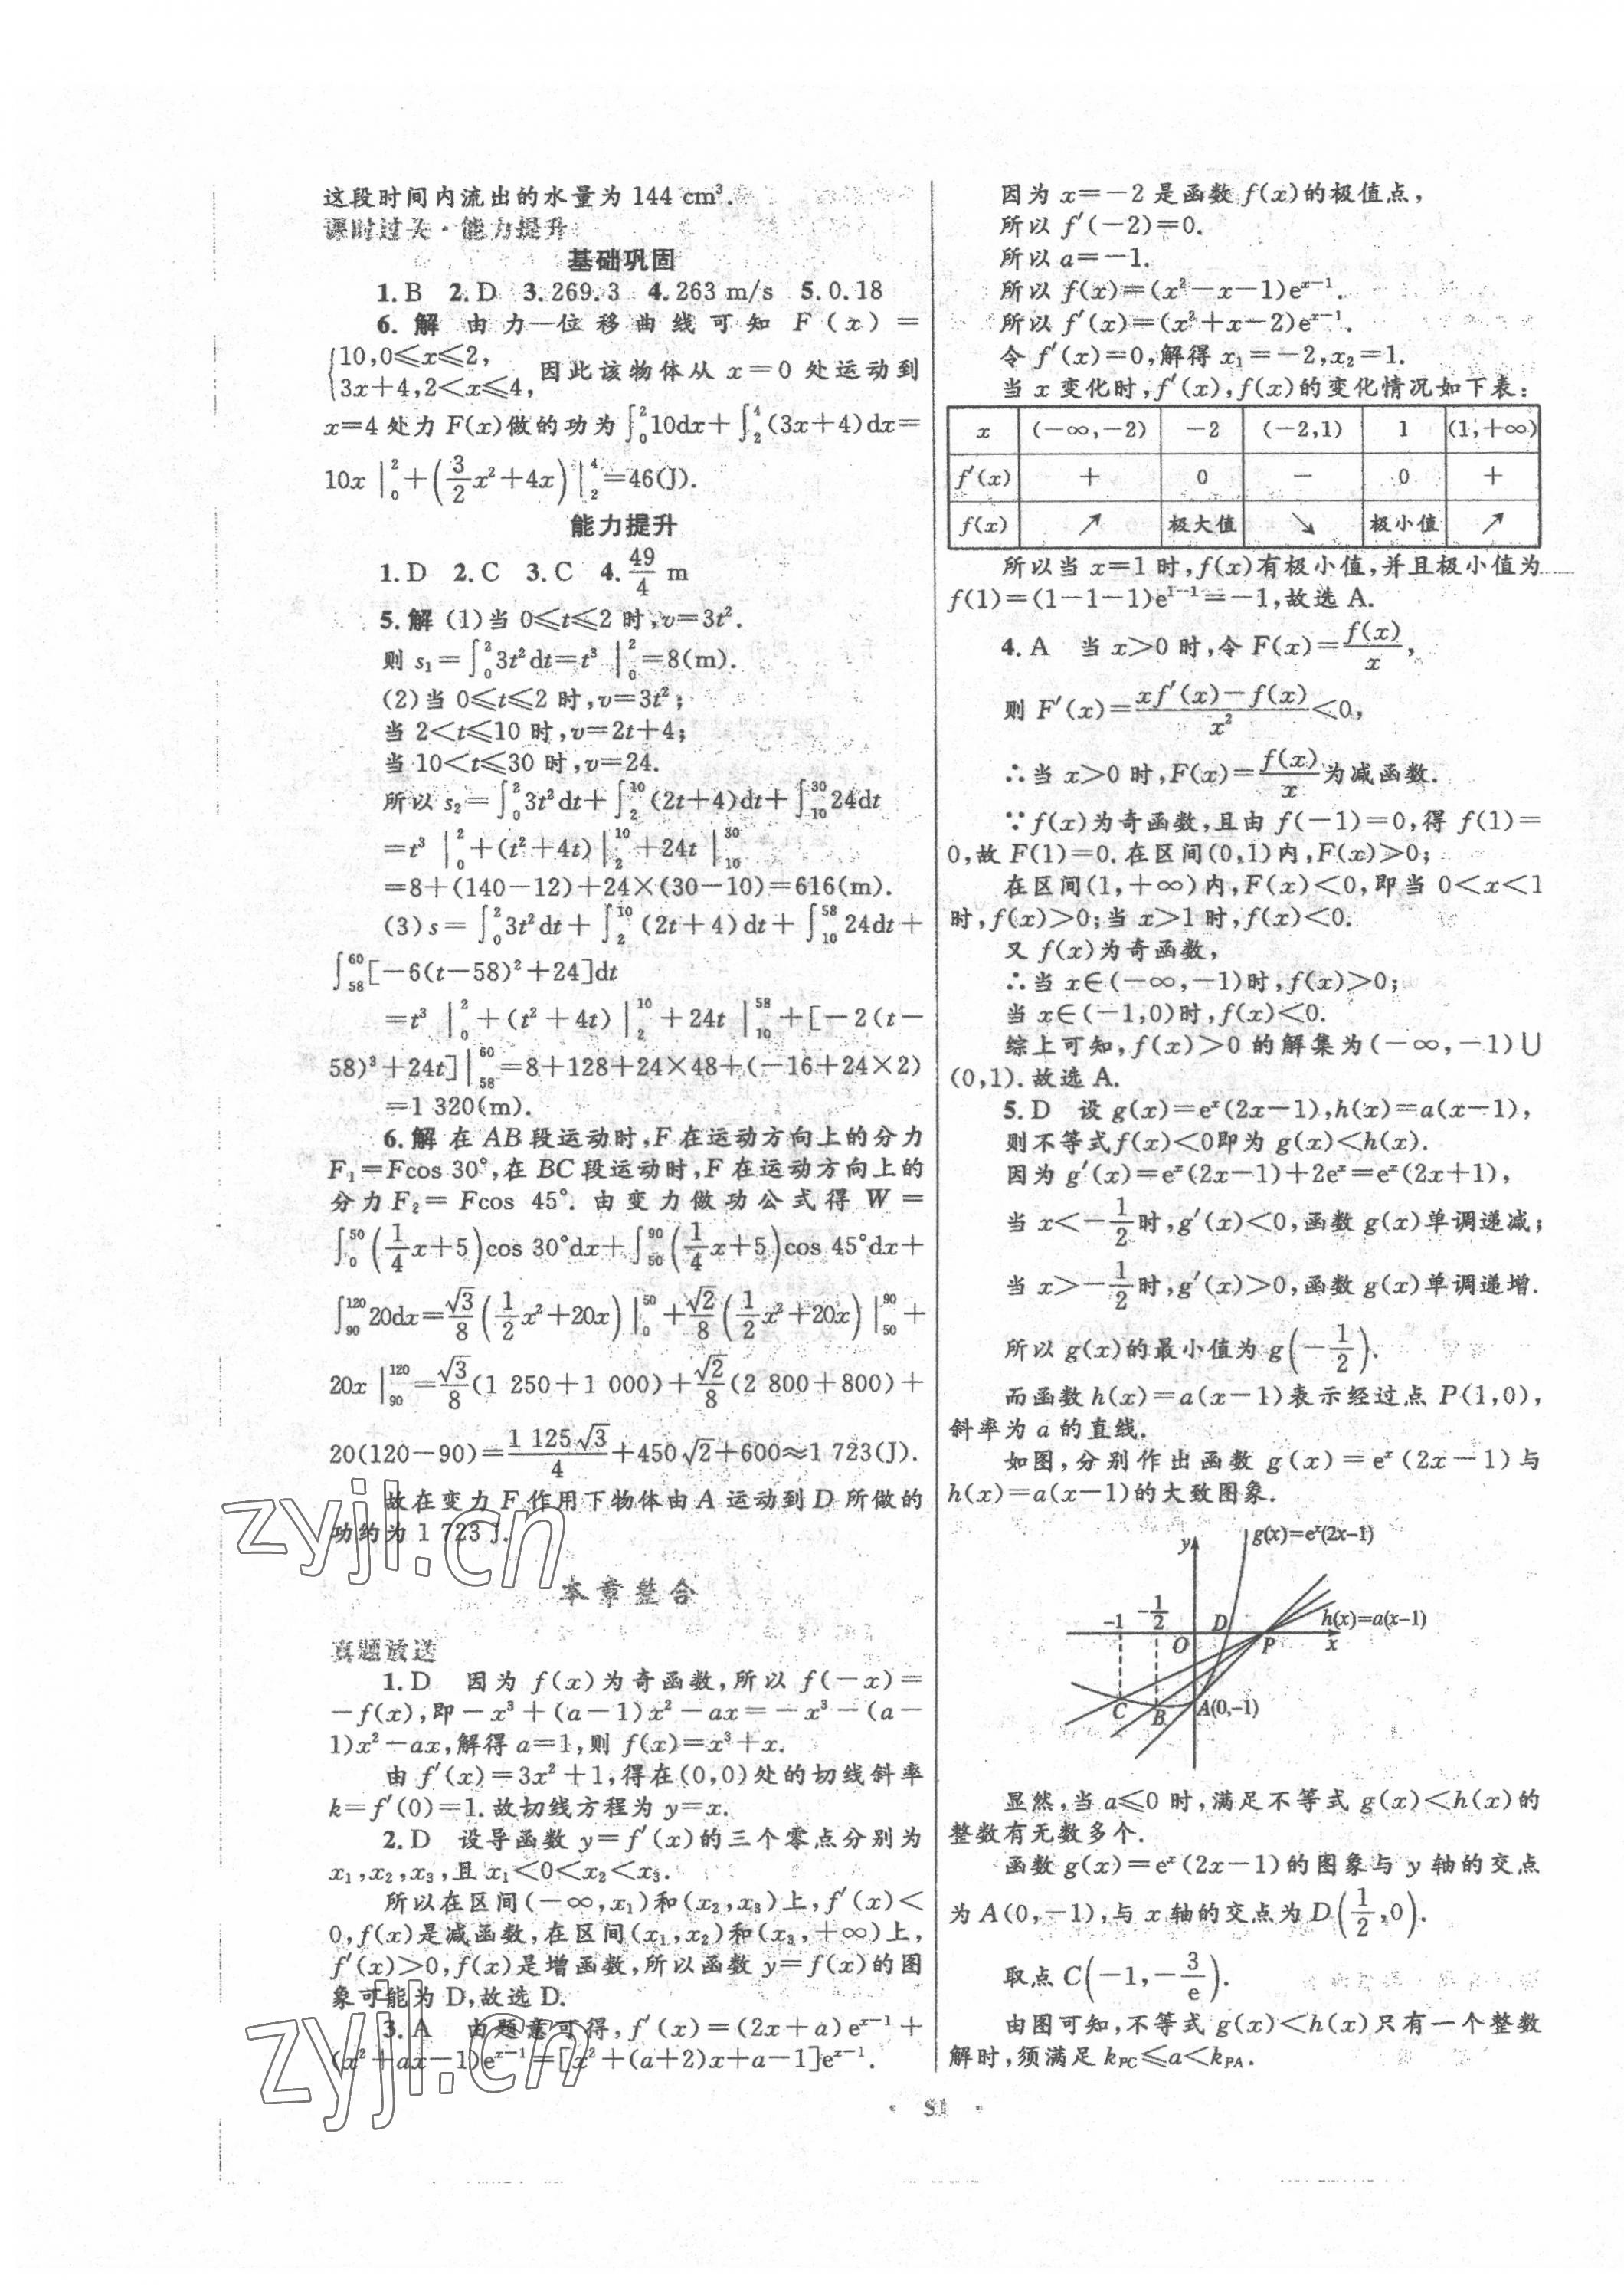 这段时间内流出的水量为 144 cm³.
课时过关·能力提升
基础巩固
1.B 2.D 3.269.3 4.263 m/s 5.0.18
6. 解 由力—位移曲线可知 F(x)=
{10,0≤x≤2,
3x+4,2<x≤4, 因此该物体从 x=0 处运动到
x=4 处力 F(x)做的功为∫₀²10dx+∫₂⁴(3x+4)dx=
10x|₀²+(3/2x²+4x)|₂⁴=46(J).
能力提升
1.D 2.C 3.C 4.49/4 m
5.解 (1)当 0≤t≤2 时,v=3t².
则 s₁=∫₀²3t²dt=t³|₀²=8(m).
(2)当 0≤t≤2 时,v=3t²;
当 2<t≤10 时,v=2t+4;
当 10<t≤30 时,v=24.
所以 s₂=∫₀²3t²dt+∫₂¹⁰(2t+4)dt+∫₁₀³⁰24dt
=t³|₀²+(t²+4t)|₂¹⁰+24t|₁₀³⁰
=8+(140-12)+24×(30-10)=616(m).
(3)s=∫₀²3t²dt+∫₂¹⁰(2t+4)dt+∫₁₀⁵⁸24dt+
∫₅₈⁶⁰[-6(t-58)²+24]dt
=t³|₀²+(t²+4t)|₂¹⁰+24t|₁₀⁵⁸+[-2(t-
58)³+24t]|₅₈⁶⁰=8+128+24×48+(-16+24×2)
=1 320(m).
6.解 在 AB 段运动时,F 在运动方向上的分力
F₁=Fcos 30°,在 BC 段运动时,F 在运动方向上的
分力 F₂=Fcos 45°. 由变力做功公式得 W=
∫₀⁵⁰(1/4x+5)cos 30°dx+∫₅₀⁹⁰(1/4x+5)cos 45°dx+
∫₉₀¹²⁰20dx=√3/8(1/2x²+20x)|₀⁵⁰+√2/8(1/2x²+20x)|₅₀⁹⁰+
20x|₉₀¹²⁰=√3/8(1 250+1 000)+√2/8(2 800+800)+
20(120-90)=1 125√3/4+450√2+600≈1 723(J).
故在变力 F 作用下物体由 A 运动到 D 所做的
功约为 1 723 J.
本章整合
真题放送
1.D 因为 f(x)为奇函数,所以 f(-x)=
-f(x),即-x³+(a-1)x²-ax=-x³-(a-
1)x²-ax,解得 a=1,则 f(x)=x³+x.
由 f′(x)=3x²+1,得在(0,0)处的切线斜率
k=f′(0)=1.故切线方程为 y=x.
2.D 设导函数 y=f′(x)的三个零点分别为
x₁,x₂,x₃,且 x₁<0<x₂<x₃.
所以在区间(-∞,x₁)和(x₂,x₃)上,f′(x)<
0,f(x)是减函数,在区间(x₁,x₂)和(x₃,+∞)上,
f′(x)>0,f(x)是增函数,所以函数 y=f(x)的图
象可能为 D,故选 D.
3.A 由题意可得,f′(x)=(2x+a)eˣ⁻¹+
(x²+ax-1)eˣ⁻¹=[x²+(a+2)x+a-1]eˣ⁻¹.
因为 x=-2 是函数 f(x)的极值点,
所以 f′(-2)=0.
所以 a=-1.
所以 f(x)=(x²-x-1)eˣ⁻¹.
所以 f′(x)=(x²+x-2)eˣ⁻¹.
令 f′(x)=0,解得 x₁=-2,x₂=1.
当 x 变化时,f′(x),f(x)的变化情况如下表:
x (-∞,-2) -2 (-2,1) 1 (1,+∞)
f′(x) + 0 - 0 +
f(x) ↗ 极大值 ↘ 极小值 ↗
所以当 x=1 时,f(x)有极小值,并且极小值为
f(1)=(1-1-1)e¹⁻¹=-1,故选 A.
4.A 当 x>0 时,令 F(x)=f(x)/x,
则 F′(x)=(xf′(x)-f(x))/x²<0,
∴当 x>0 时,F(x)=f(x)/x为减函数.
∵f(x)为奇函数,且由 f(-1)=0,得 f(1)=
0,故 F(1)=0.在区间(0,1)内,F(x)>0;
在区间(1,+∞)内,F(x)<0,即当 0<x<1
时,f(x)>0;当 x>1 时,f(x)<0.
又 f(x)为奇函数,
∴当 x∈(-∞,-1)时,f(x)>0;
当 x∈(-1,0)时,f(x)<0.
综上可知,f(x)>0 的解集为(-∞,-1)∪
(0,1).故选 A.
5.D 设 g(x)=eˣ(2x-1),h(x)=a(x-1),
则不等式f(x)<0即为 g(x)<h(x).
因为 g′(x)=eˣ(2x-1)+2eˣ=eˣ(2x+1),
当 x<-1/2时,g′(x)<0,函数 g(x)单调递减;
当 x>-1/2时,g′(x)>0,函数 g(x)单调递增.
所以 g(x)的最小值为 g(-1/2).
而函数 h(x)=a(x-1)表示经过点 P(1,0),
斜率为 a 的直线.
如图,分别作出函数 g(x)=eˣ(2x-1)与
h(x)=a(x-1)的大致图象.
y g(x)=eˣ(2x-1)
-1 -1/2 D h(x)=a(x-1)
O P x
C B A(0,-1)
显然,当 a≤0 时,满足不等式 g(x)<h(x)的
整数有无数多个.
函数 g(x)=eˣ(2x-1)的图象与 y 轴的交点
为 A(0,-1),与 x 轴的交点为 D(1/2,0).
取点 C(-1,-3/e).
由图可知,不等式 g(x)<h(x)只有一个整数
解时,须满足 k_PC≤a<k_PA.
· S1 ·
zyjl.cn
zyjl.cn